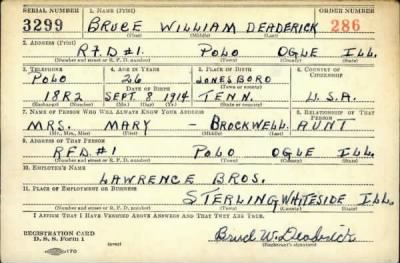 SERIAL NUMBER 1. NAME (Print) ORDER NUMBER
3299 BRUCE WILLIAM DEADERICK 286
(First) (Middle) (Last)
2. ADDRESS (Print)
R.F.D #1. POLO OGLE ILL.
(Number and street or R. F. D. number) (Town) (County) (State)
3. TELEPHONE 4. AGE IN YEARS 5. PLACE OF BIRTH 6. COUNTRY OF CITIZENSHIP
POLO 26 JONESBORO
DATE OF BIRTH (Town or county)
18R2 SEPT. 8 1914 TENN. U.S.A.
(Exchange) (Number) (Mo.) (Day) (Yr.) (State or country)
7. NAME OF PERSON WHO WILL ALWAYS KNOW YOUR ADDRESS 8. RELATIONSHIP OF THAT PERSON
MRS. MARY - BROCKWELL. AUNT
(Mr., Mrs., Miss) (First) (Middle) (Last)
9. ADDRESS OF THAT PERSON
R.F.D.#1 POLO OGLE ILL.
(Number and street or R. F. D. number) (Town) (County) (State)
10. EMPLOYER'S NAME
LAWRENCE BROS.
11. PLACE OF EMPLOYMENT OR BUSINESS
STERLING WHITESIDE ILL.
(Number and street or R. F. D. number) (Town) (County) (State)
I AFFIRM THAT I HAVE VERIFIED ABOVE ANSWERS AND THAT THEY ARE TRUE.
REGISTRATION CARD
D. S. S. Form 1 (over) Bruce W. Deaderick
(Registrant's signature)